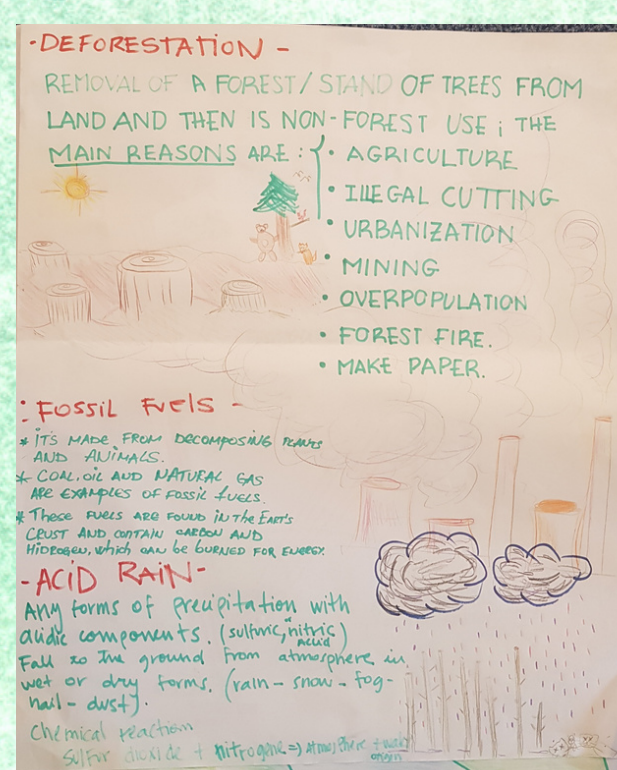 ·DEFORESTATION -
REMOVAL OF A FOREST/ STAND OF TREES FROM
LAND AND THEN IS NON-FOREST USE ; THE
MAIN REASONS ARE : { · AGRICULTURE
· ILLEGAL CUTTING
· URBANIZATION
· MINING
· OVERPOPULATION
· FOREST FIRE.
· MAKE PAPER.
: FOSSIL FUELS -
* ITS MADE FROM DECOMPOSING PLANTS
AND ANIMALS.
* COAL, OIL AND NATURAL GAS
ARE EXAMPLES OF FOSSIL FUELS.
* THESE FUELS ARE FOUND IN THE EART'S
CRUST AND CONTAIN CARBON AND
HIDROGEN, WHICH CAN BE BURNED FOR ENERGY.
-ACID RAIN-
Any forms of precipitation with
acidic components. (sulfuric, nitric)
acid
Fall to the ground from atmosphere in
wet or dry forms. (rain - snow - fog -
hail - dust).
Chemical reaction
sulfur dioxide + nitrogene => Atmosphere +